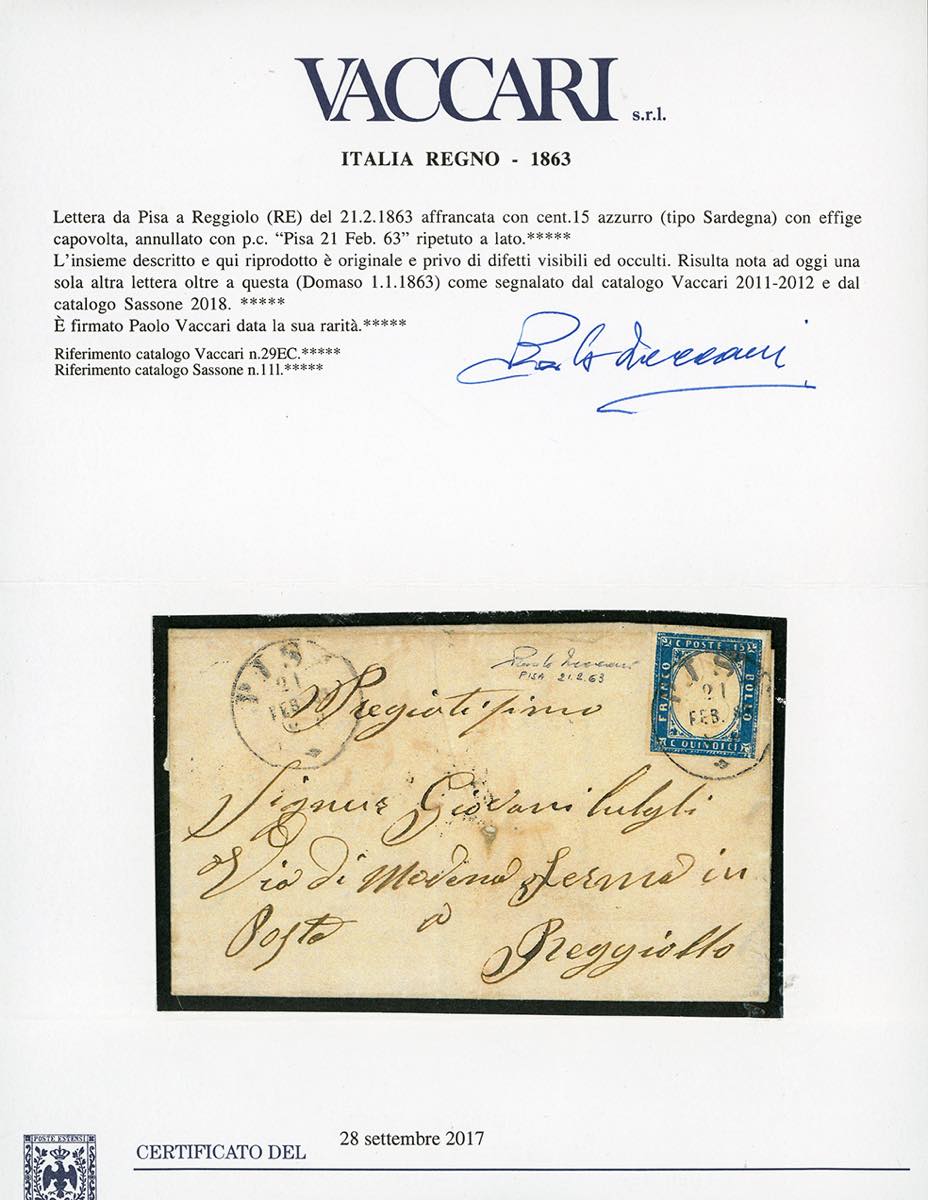 VACCARI s.r.l.
ITALIA REGNO - 1863
Lettera da Pisa a Reggiolo (RE) del 21.2.1863 affrancata con cent.15 azzurro (tipo Sardegna) con effige
capovolta, annullato con p.c. “Pisa 21 Feb. 63” ripetuto a lato.*****
L’insieme descritto e qui riprodotto è originale e privo di difetti visibili ed occulti. Risulta nota ad oggi una
sola altra lettera oltre a questa (Domaso 1.1.1863) come segnalato dal catalogo Vaccari 2011-2012 e dal
catalogo Sassone 2018. *****
È firmato Paolo Vaccari data la sua rarità.*****
Riferimento catalogo Vaccari n.29EC.*****
Riferimento catalogo Sassone n.11l.*****
Paolo Vaccari
PIS
21
FEB.
Paolo Vaccari
PISA 21.2.63
C POSTE 15
FRANCO
BOLLO
C QUINDICI
PIS
21
FEB.
Pregiatisimo
Signor Giovani
Via di Modena ferma in
Posta a
Reggiollo
POSTE ESTENSI
CERTIFICATO DEL 28 settembre 2017